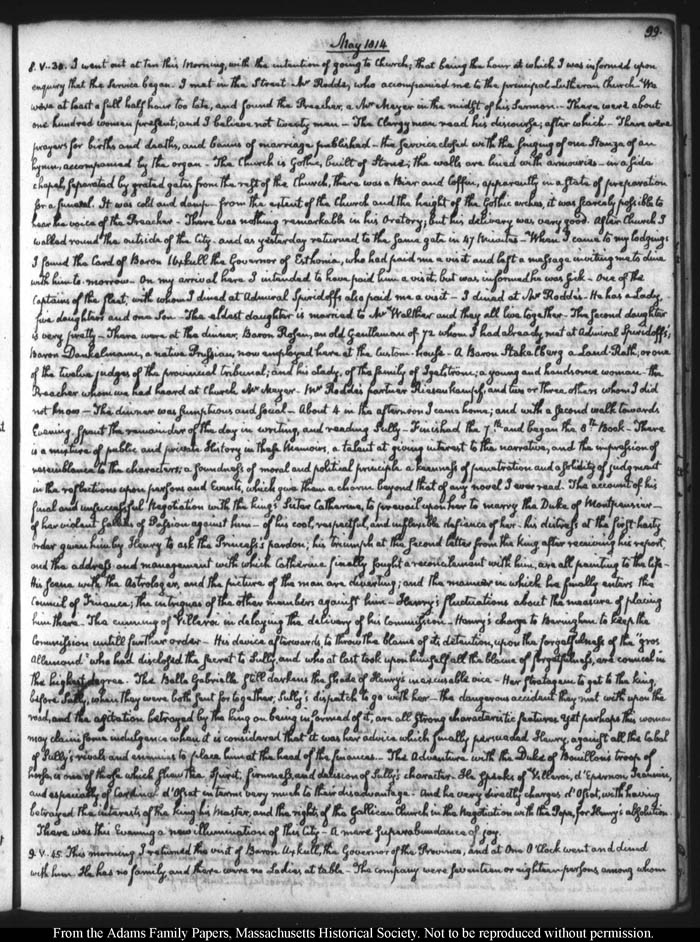 99.
May 1814
8. V..30. I went out at Ten this Morning, with the intention of going to Church; that being the hour at which I was informed upon
enquiry that the Service began. I met in the Street Mr Rodde, who accompanied me to the principal Lutheran Church. We
were at least a full half hour too late, and found the Preacher, a Mr Meyer in the midst of his Sermon. There were about
one hundred women present; and I believe not twenty men — The Clergyman read his discourse; after which — There were
prayers for births and deaths, and banns of marriage published — the Service closed with the singing of one Stanza of an
hymn, accompanied by the organ — The Church is Gothic, built of Stone; the walls are lined with armouries — in a side
chapel, separated by grated gates from the rest of the Church, there was a Bier and Coffin, apparently in a state of preparation
for a funeral. It was cold and damp — from the extent of the Church and the height of the Gothic arches, it was scarcely possible to
hear the voice of the Preacher — There was nothing remarkable in his Oratory; but his delivery was very good. After Church I
walked round the outside of the City — and as yesterday returned to the same gate in 47 Minutes — When I came to my lodgings
I found the Card of Baron Uxkull the Governor of Esthonia, who had paid me a visit and left a message inviting me to dine
with him to-morrow — On my arrival here I intended to have paid him a visit, but was informed he was sick — One of the
Captains of the fleet, with whom I dined at Admiral Spiridoff's also paid me a visit — I dined at Mr Rodde's — He has a Lady,
five daughters and one Son — The eldest daughter is married to Mr Walther and they all live together — The second daughter
is very pretty — There were at the dinner, Baron Rosen, an old Gentleman of 72 whom I had already met at Admiral Spiridoff's;
Baron Dankelmann, a native Prussian, now employed here at the Custom-house — A Baron Stakelberg a Land-Rath, or one
of the twelve judges of the provincial tribunal; and his Lady, of the family of Igelström; a young and handsome woman — the
Preacher whom we had heard at Church Mr Meyer — Mr Rodde's partner Riesenkampf, and two or three others whom I did
not know — The dinner was sumptuous and social — About 4 in the afternoon I came home; and with a second walk towards
Evening, spent the remainder of the day in writing, and reading Sully — Finished the 7th. and began the 8th. Book — There
is a mixture of public and private History in these Memoirs, a talent at giving interest to the narrative, and the impression of
resemblance to the characters; a soundness of moral and political principle a keenness of penetration and a solidity of judgment
in the reflections upon persons and Events, which give them a charm beyond that of any novel I ever read. The account of his
first and unsuccessful Negotiation with the king's Sister Catherine, to prevail upon her to marry the Duke of Montpensier —
of her violent sallies of Passion against him — of his cool, respectful, and inflexible defiance of her — his distress at the first hasty
order given him by Henry to ask the Princess's pardon; his triumph at the second letter from the king after receiving his report,
and the address and management with which Catherine finally sought a reconcilement with him, are all painting to the life —
His scene with the Astrologer, and the picture of the man are diverting; and the manner in which he finally enters the
Council of Finance; the intrigues of the other members against him — Henry's fluctuations about the measure of placing
him there — The cunning of Villeroi in delaying the delivery of his Commission — Henry's charge to Beringhen to keep the
Commission untill further order — His device afterwards, to throw the blame of its detention, upon the forgetfulness of the "gros
Allemand" who had disclosed the secret to Sully, and who at last took upon himself all the blame of forgetfulness, are comical in
the highest degree — The Belle Gabrielle still darkens the shade of Henry's inexcusable vice — Her stratagem to get to the king,
before Sully, when they were both sent for together; Sully's dispatch to go with her — the dangerous accident they met with upon the
road, and the agitation betrayed by the king on being informed of it, are all strong characteristic features. Yet perhaps the woman
may claim some indulgence when it is considered that it was her advice which finally persuaded Henry, against all the Cabal
of Sully's rivals and enemies to place him at the head of the finances — The Adventure with the Duke of Bouillon's troop of
horse, is one of those which shew the Spirit, firmness, and decision of Sully's character. He speaks of Villeroi, d'Epernon Jeannin,
and especially of Cardinal d'Ossat in terms very much to their disadvantage — And he very directly charges d'Ossat, with having
betrayed the interests of the king his Master, and the rights of the Gallican Church in the Negotiation with the Pope, for Henry's absolution
There was this Evening a new illumination of the City — A mere superabundance of joy.
9. V. 45. This morning I returned the visit of Baron Uxkull, the Governor of the Province, and at One O'Clock went and dined
with him. He has no family, and there were no Ladies at table — The company were seventeen or eighteen persons, among whom
From the Adams Family Papers, Massachusetts Historical Society. Not to be reproduced without permission.